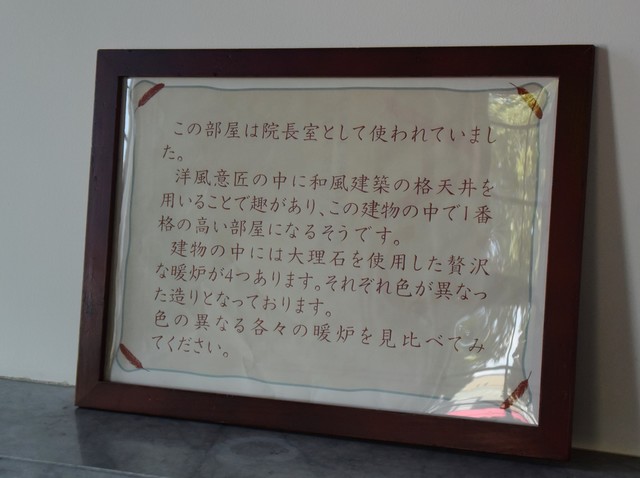 この部屋は院長室として使われていまし
た。
洋風意匠の中に和風建築の格天井を
用いることで趣があり、この建物の中で1番
格の高い部屋になるそうです。
建物の中には大理石を使用した贅沢
な暖炉が4つあります。それぞれ色が異なっ
た造りとなっております。
色の異なる各々の暖炉を見比べてみ
てください。